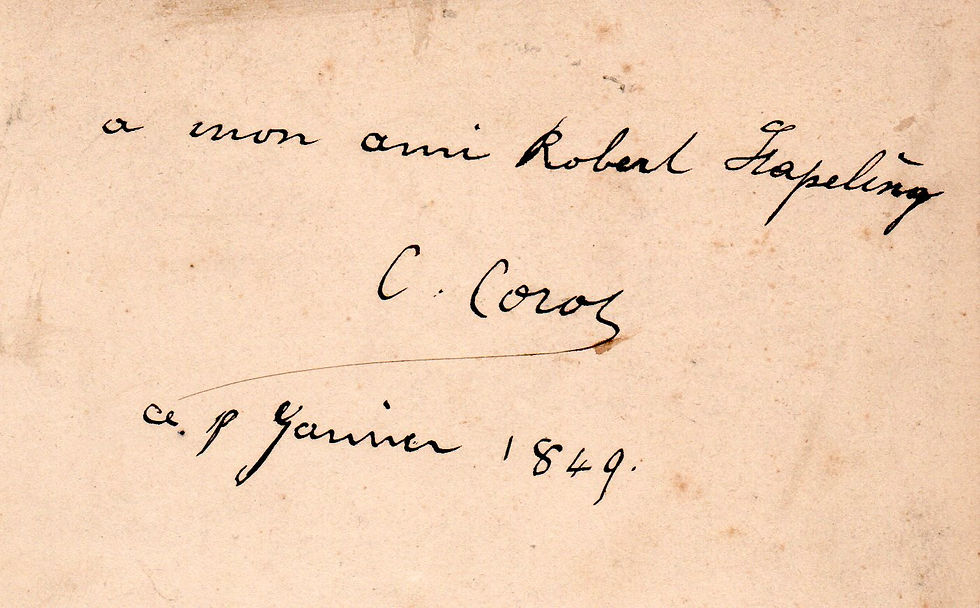 a mon ami Robert Stapeling
C. Corot
ce. p Janvier 1849.